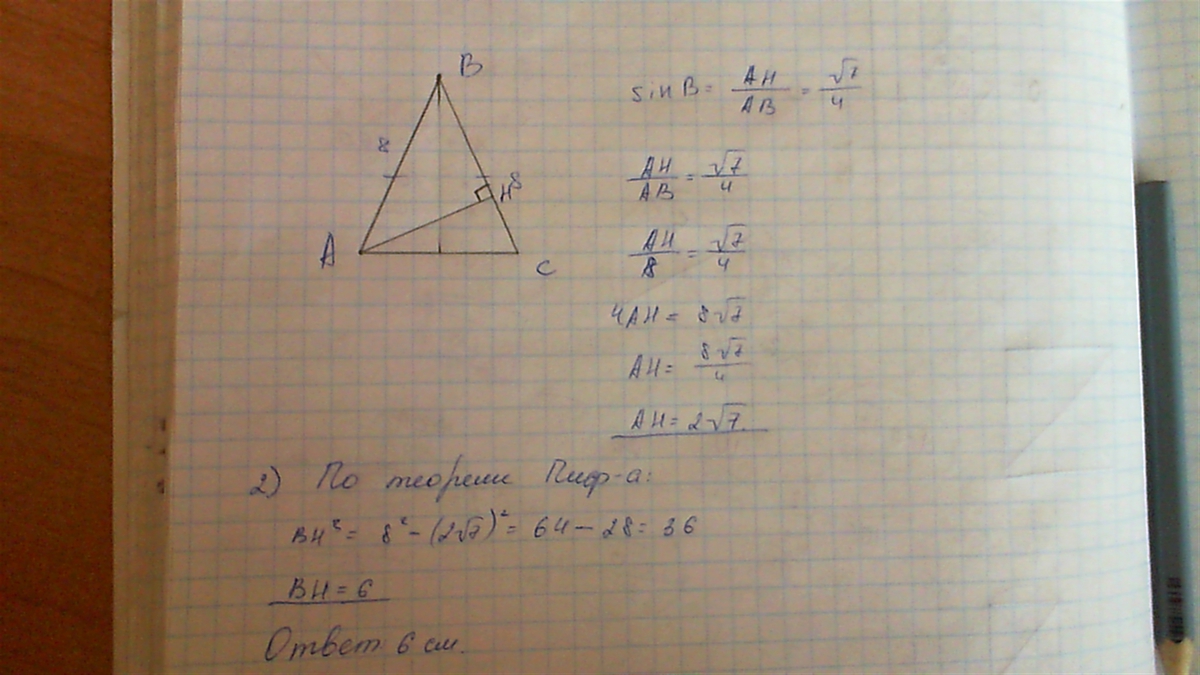 B
8
8
H
A
C
sin B = AH/AB = √7/4
AH/AB = √7/4
AH/8 = √7/4
4AH = 8√7
AH = 8√7/4
AH = 2√7.
2) По теореме Пиф-а:
BH² = 8² - (2√7)² = 64 - 28 = 36
BH = 6
Ответ 6 см.